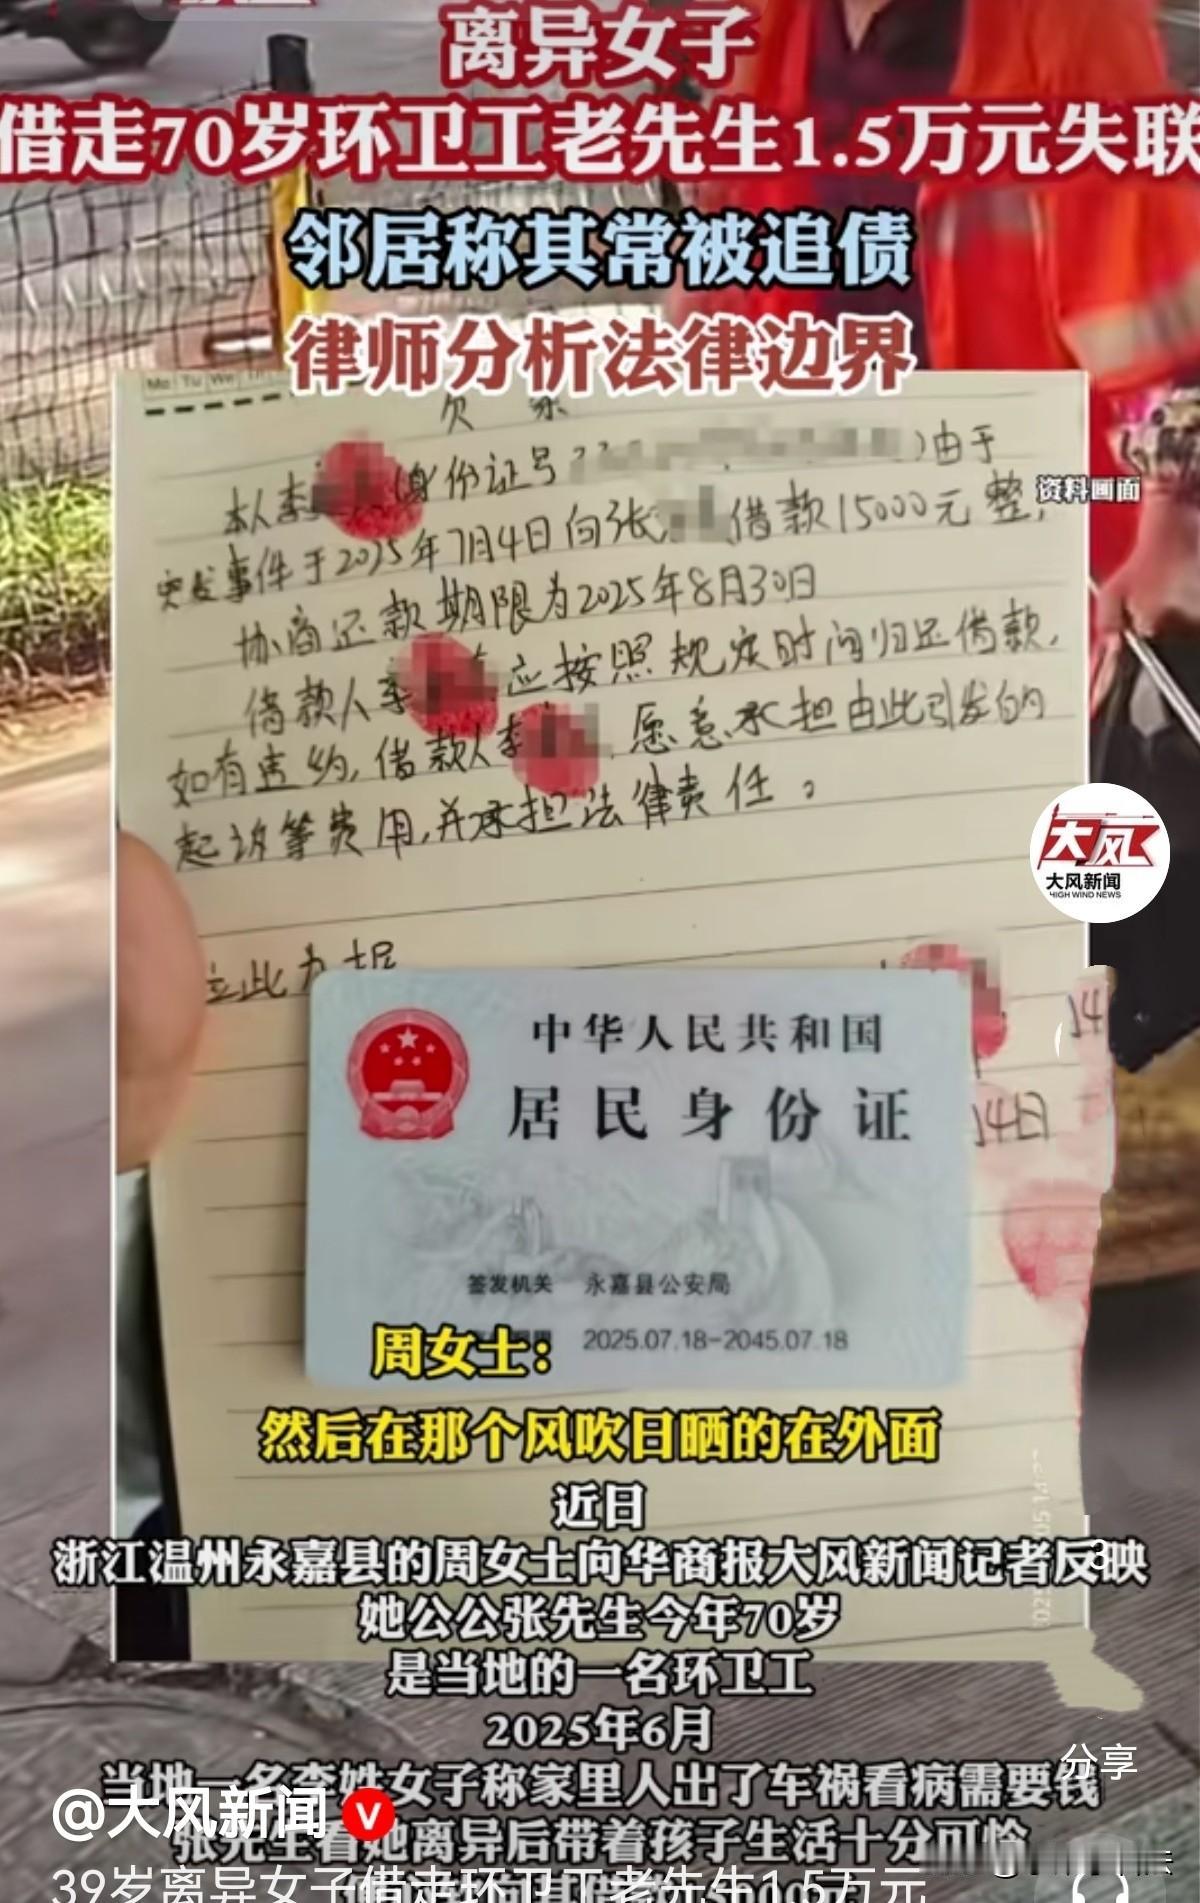 离异女子
借走70岁环卫工老先生1.5万元失联
邻居称其常被追债
律师分析法律边界
Mo Tu We
欠条
本人李 (身份证号33 )由于
资料画面
突发事件于2025年7月4日向张 借款15000元整,
协商还款期限为2025年8月30日
借款人李 应按照规定时间归还借款,
如有违约,借款人李 愿意承担由此引发的
起诉等费用,并承担法律责任。
大风
大风新闻
HIGH WIND NEWS
立此为据
14
14日
中华人民共和国
居民身份证
签发机关 永嘉县公安局
2025.07.18-2045.07.18
周女士:
然后在那个风吹日晒的在外面
近日
浙江温州永嘉县的周女士向华商报大风新闻记者反映
她公公张先生今年70岁
是当地的一名环卫工
2025年6月
分享
当地一名李姓女子称家里人出了车祸看病需要钱
@大风新闻
张先生看她离异后带着孩子生活十分可怜
39岁离异女子借走环卫工老先生1.5万元